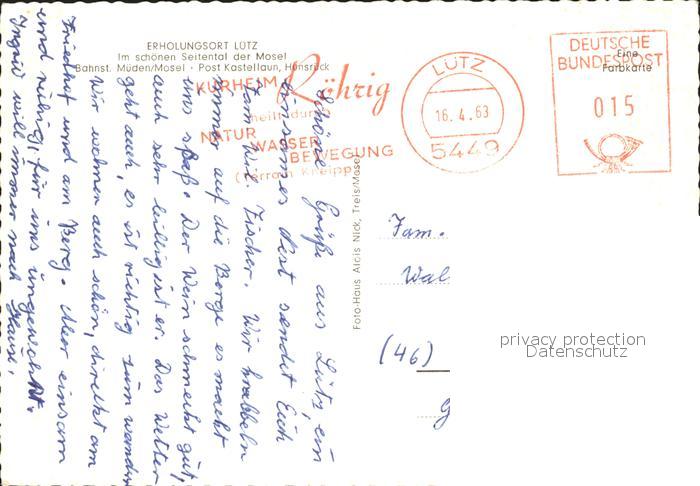 ERHOLUNGSORT LÜTZ
Im schönen Seitental der Mosel
Bahnst. Müden/Mosel · Post Kastellaun, Hunsrück
KURHEIM Röhrig
heilt durch
NATUR
WASSER
BEWEGUNG
(Terrain Kneipp)
LÜTZ
16.4.63
5449
DEUTSCHE
BUNDESPOST
015
Eine
Farbkarte
Foto-Haus Alois Nick, Treis/Mosel
Schöne Grüße aus Lütz, ein
böses Nest sendet Euch
Fam. Wil. Fischer. Wir krabbeln
immer auf die Berge es macht
uns Spaß. Der Wein schmeckt gut,
auch sehr billig ist er. Das Wetter
geht auch, es ist richtig zum wandern
Wir wohnen auch schön, direkt am
Friedhof und am Berg. Aber einsam
und ruhig, für uns ungewohnt.
Ingrid will immer nach Hause,
Fam.
Wal
(46)
G
privacy protection
Datenschutz